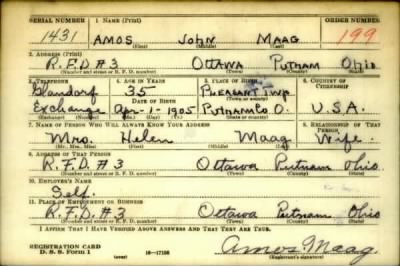 SERIAL NUMBER 1. NAME (Print) ORDER NUMBER
1431 AMOS JOHN MAAG 199
(First) (Middle) (Last)
2. ADDRESS (Print)
R.F.D #3 OTTAWA PUTNAM OHIO
(Number and street or R. F. D. number) (Town) (County) (State)
3. TELEPHONE 4. AGE IN YEARS 5. PLACE OF BIRTH 6. COUNTRY OF CITIZENSHIP
Glandorf 35 PLEASANT TWP
DATE OF BIRTH (Town or county)
Exchange Apr-1-1905 PUTNAM CO O. U.S.A.
(Exchange) (Number) (Mo.) (Day) (Yr.) (State or country)
7. NAME OF PERSON WHO WILL ALWAYS KNOW YOUR ADDRESS 8. RELATIONSHIP OF THAT PERSON
Mrs. Helen Maag Wife
(Mr., Mrs., Miss) (First) (Middle) (Last)
9. ADDRESS OF THAT PERSON
R.F.D. #3 Ottawa Putnam Ohio
(Number and street or R. F. D. number) (Town) (County) (State)
10. EMPLOYER'S NAME
Self.
11. PLACE OF EMPLOYMENT OR BUSINESS
R.F.D. #3 Ottawa Putnam Ohio
(Number and street or R. F. D. number) (Town) (County) (State)
I AFFIRM THAT I HAVE VERIFIED ABOVE ANSWERS AND THAT THEY ARE TRUE.
REGISTRATION CARD
D. S. S. Form 1 (over) 16—17105 Amos Maag
(Registrant's signature)